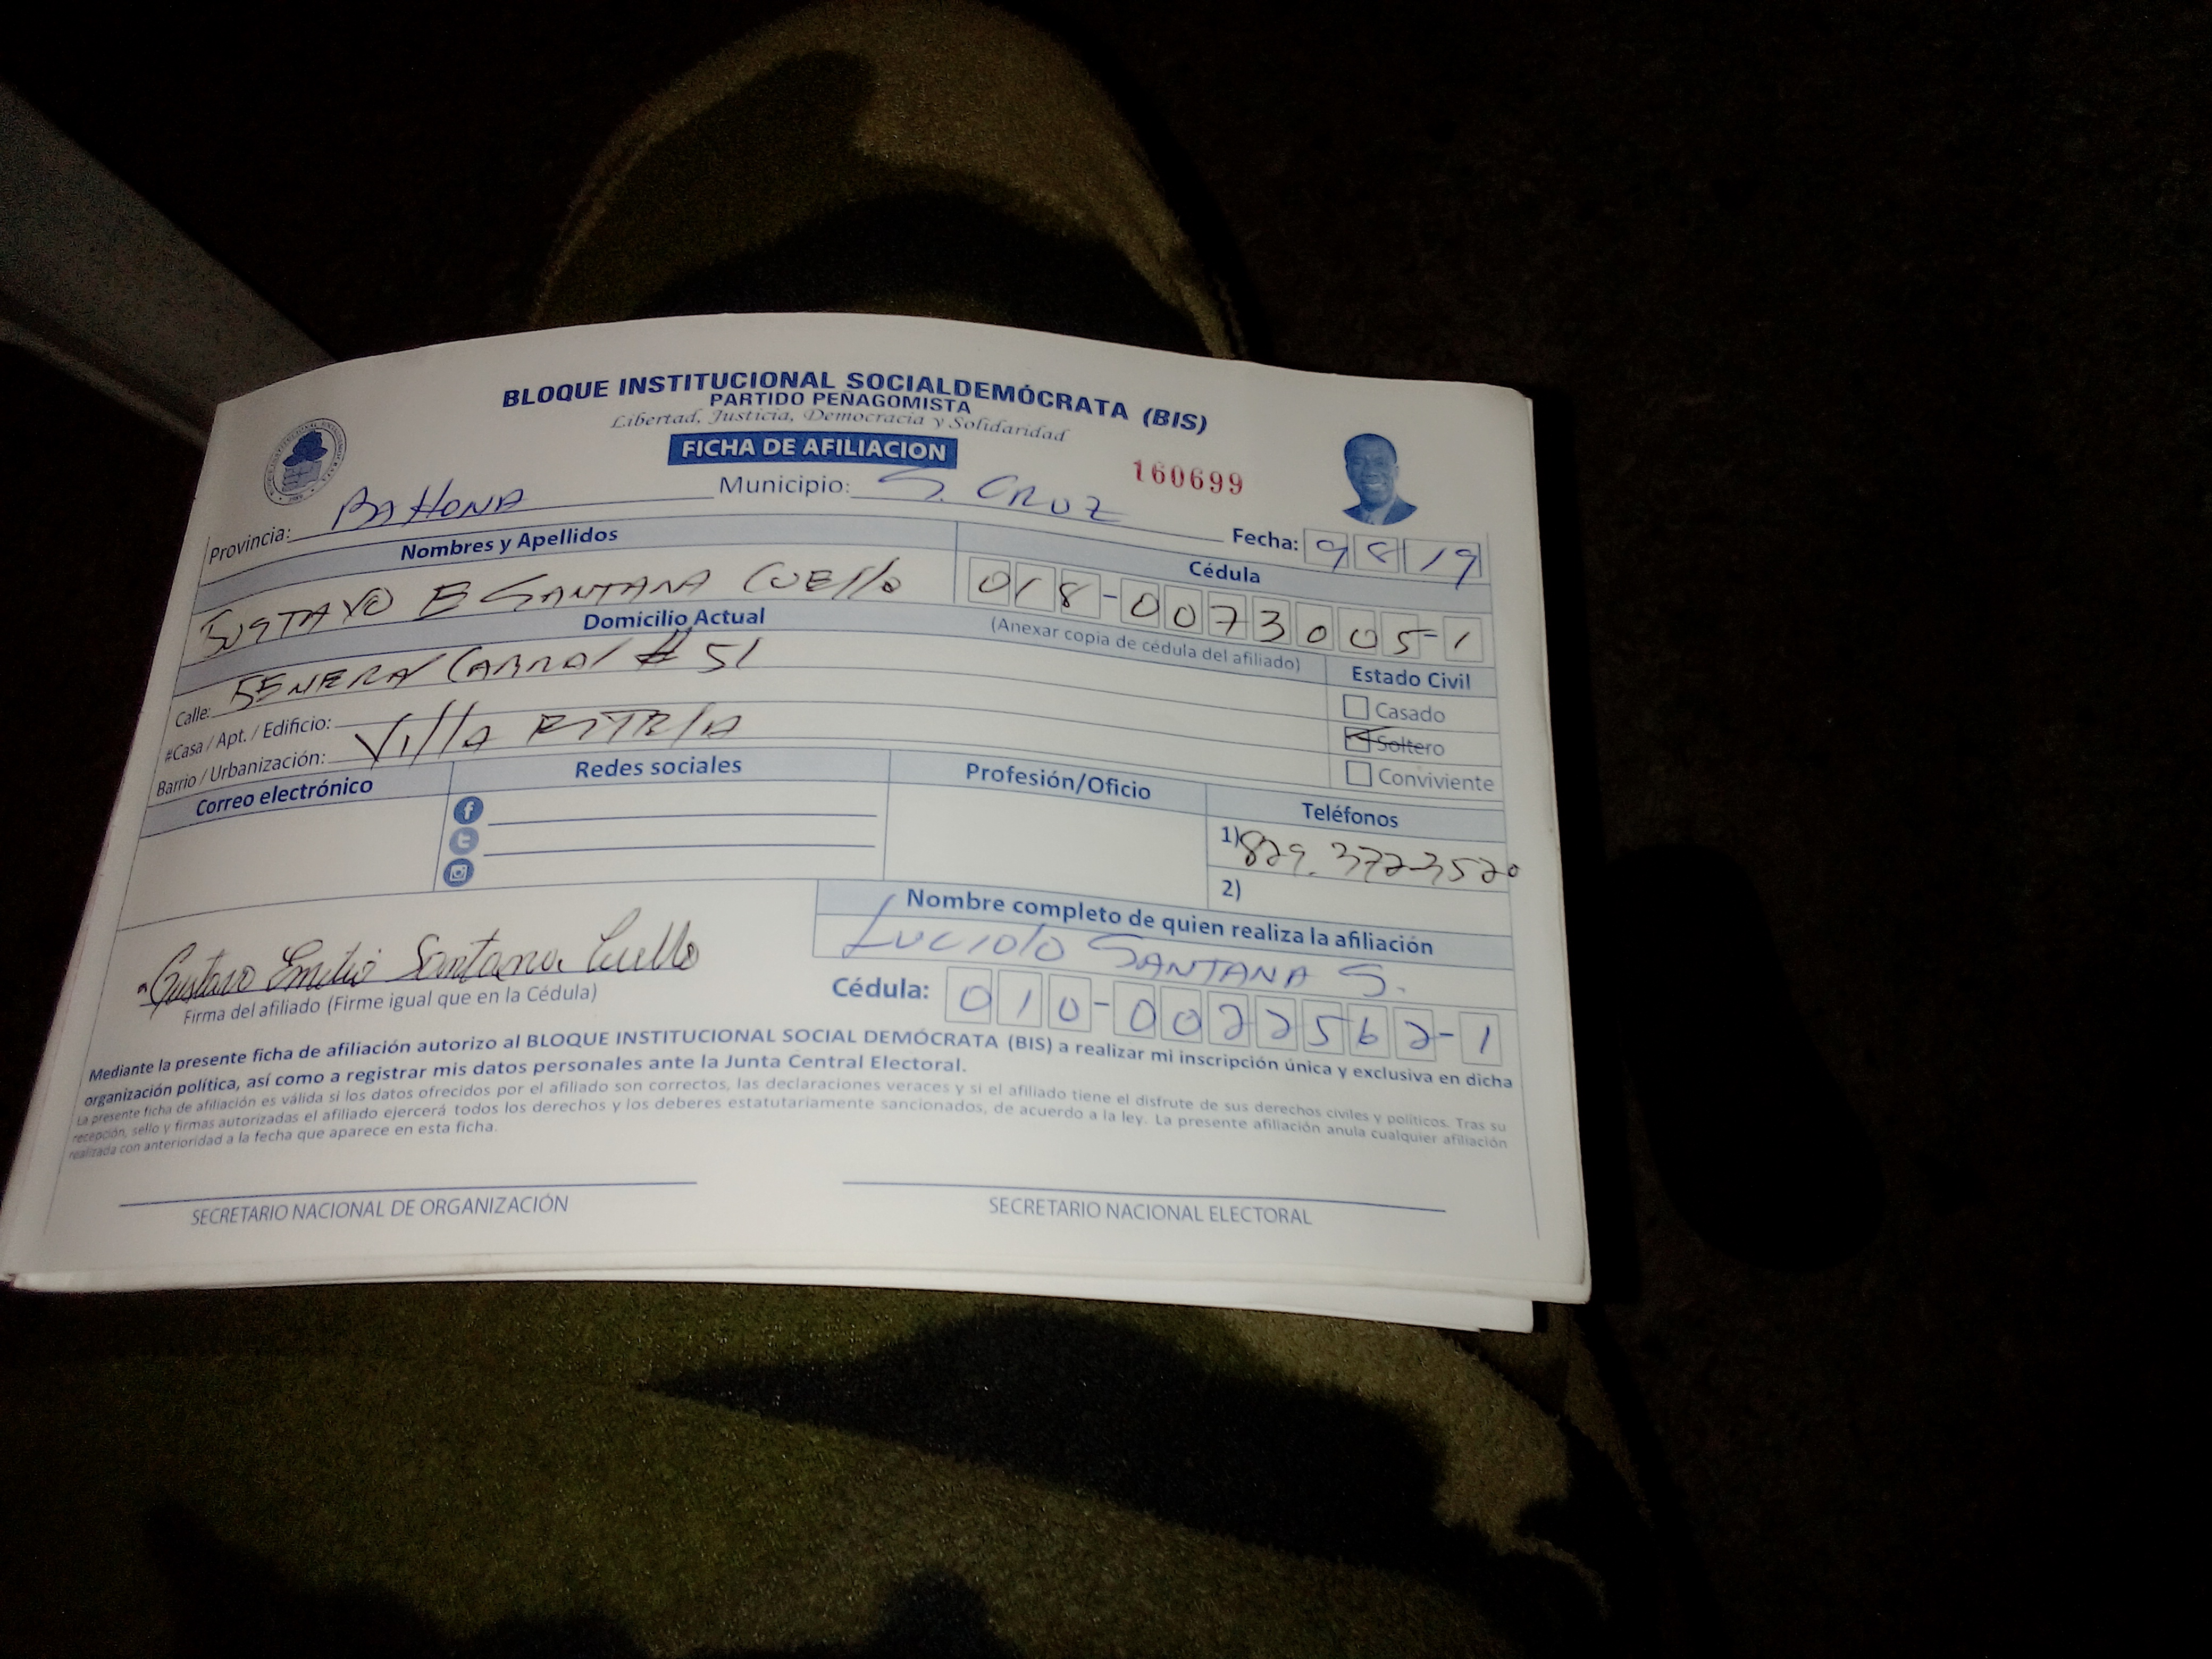 BLOQUE INSTITUCIONAL SOCIALDEMÓCRATA (BIS)
PARTIDO PEÑAGOMISTA
Libertad, Justicia, Democracia y Solidaridad
FICHA DE AFILIACION
160699
Provincia: BAHONA Municipio: S. CRUZ
Fecha: 9 8 19
Nombres y Apellidos Cédula
GUSTAVO E SANTANA CUEllo 018-0073005-1
Domicilio Actual (Anexar copia de cédula del afiliado)
Calle: GENERAl CABRAl # 51
#Casa / Apt. / Edificio:
Barrio / Urbanización: Villa
Estado Civil
Casado
Soltero
Conviviente
Correo electrónico Redes sociales Profesión/Oficio Teléfonos
1) 829. 372-3520
2)
Nombre completo de quien realiza la afiliación
LUCIOlO SANTANA S.
Cédula: 010-0022562-1
Gustavo Emilio Santana Cuello
Firma del afiliado (Firme igual que en la Cédula)
Mediante la presente ficha de afiliación autorizo al BLOQUE INSTITUCIONAL SOCIAL DEMÓCRATA (BIS) a realizar mi inscripción única y exclusiva en dicha
organización política, así como a registrar mis datos personales ante la Junta Central Electoral.
La presente ficha de afiliación es válida si los datos ofrecidos por el afiliado son correctos, las declaraciones veraces y si el afiliado tiene el disfrute de sus derechos civiles y políticos. Tras su
recepción, sello y firmas autorizadas el afiliado ejercerá todos los derechos y los deberes estatutariamente sancionados, de acuerdo a la ley. La presente afiliación anula cualquier afiliación
realizada con anterioridad a la fecha que aparece en esta ficha.
SECRETARIO NACIONAL DE ORGANIZACIÓN SECRETARIO NACIONAL ELECTORAL